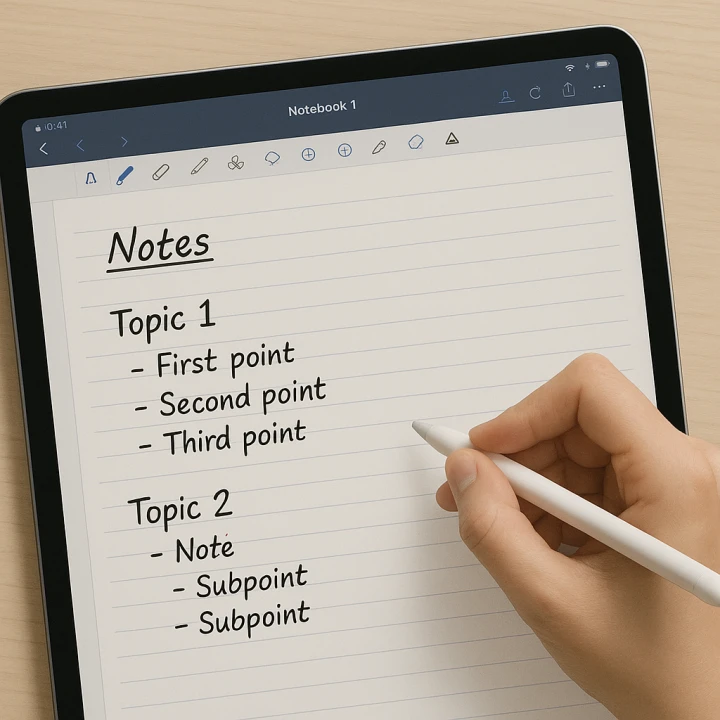 10:41
Notebook 1
Notes
Topic 1
- First point
- Second point
- Third point
Topic 2
- Note
- Subpoint
- Subpoint